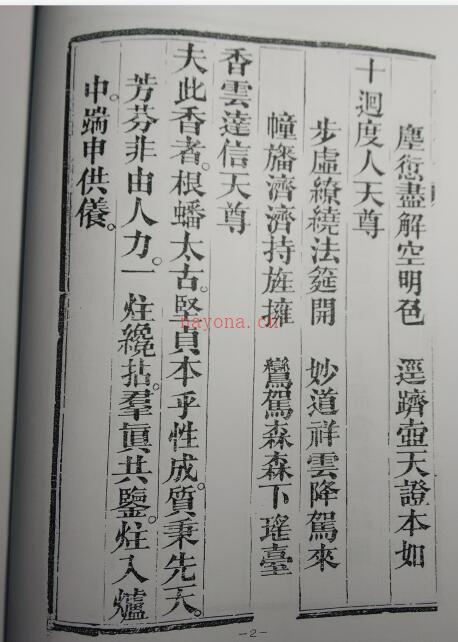 塵銜盡解空明色　逕躋壺天證本如
十迴度人天尊
步虛繚繞法筵開　妙道祥雲降駕來
幢旛濟濟持旌擁　鸞駕森森下瑤臺
香雲達信天尊
夫此香者。根蟠太古。堅貞本乎性成。質秉先天。
芳芬非由人力。一炷纔拈。羣眞共鑒。炷入爐
中。端申供儀。
nayona.cn
—2—